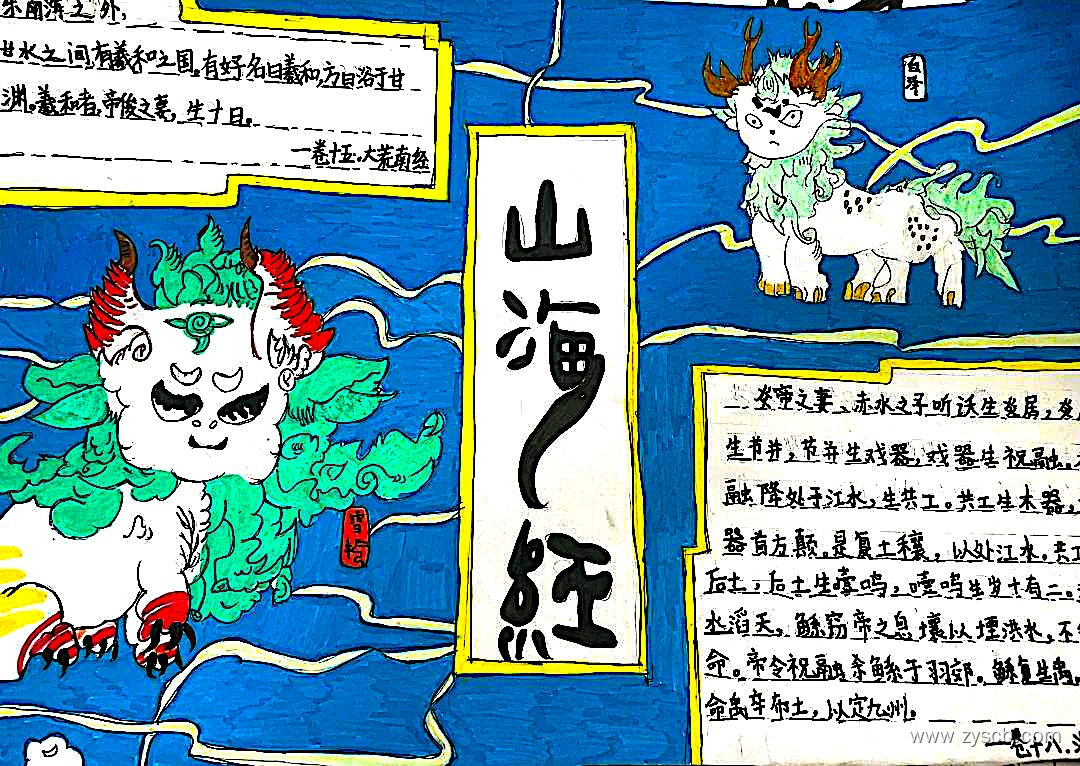 东南海之外,
甘水之间,有羲和之国,有好名曰羲和,方日浴于甘
渊。羲和者,帝俊之妻,生十日。
一卷十五.大荒南经
白泽
山海经
炎帝之妻、赤水之子听沃生炎居,炎
生节并,节并生戏器,戏器生祝融。
融降处于江水,生共工。共工生术器,
器首方颠。是复土穰,以处江水。共工
后土,后土生噎鸣,噎鸣生岁十有二。
水滔天,鲧窃帝之息壤以堙洪水,不
命。帝令祝融杀鲧于羽郊。鲧复生禹,
命禹卒布土,以定九州。
一卷十八.
www.zyscb.com